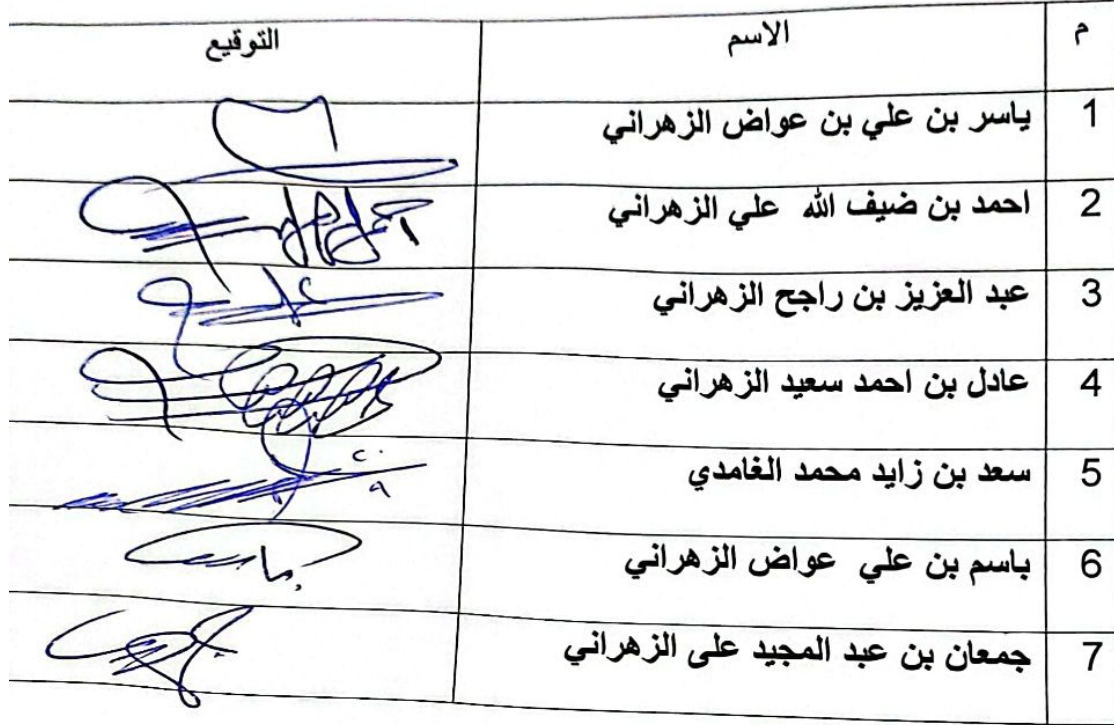 م الاسم التوقيع
1 ياسر بن علي بن عواض الزهراني
2 احمد بن ضيف الله علي الزهراني
3 عبد العزيز بن راجح الزهراني
4 عادل بن احمد سعيد الزهراني
5 سعد بن زايد محمد الغامدي
6 باسم بن علي عواض الزهراني
7 جمعان بن عبد المجيد على الزهراني